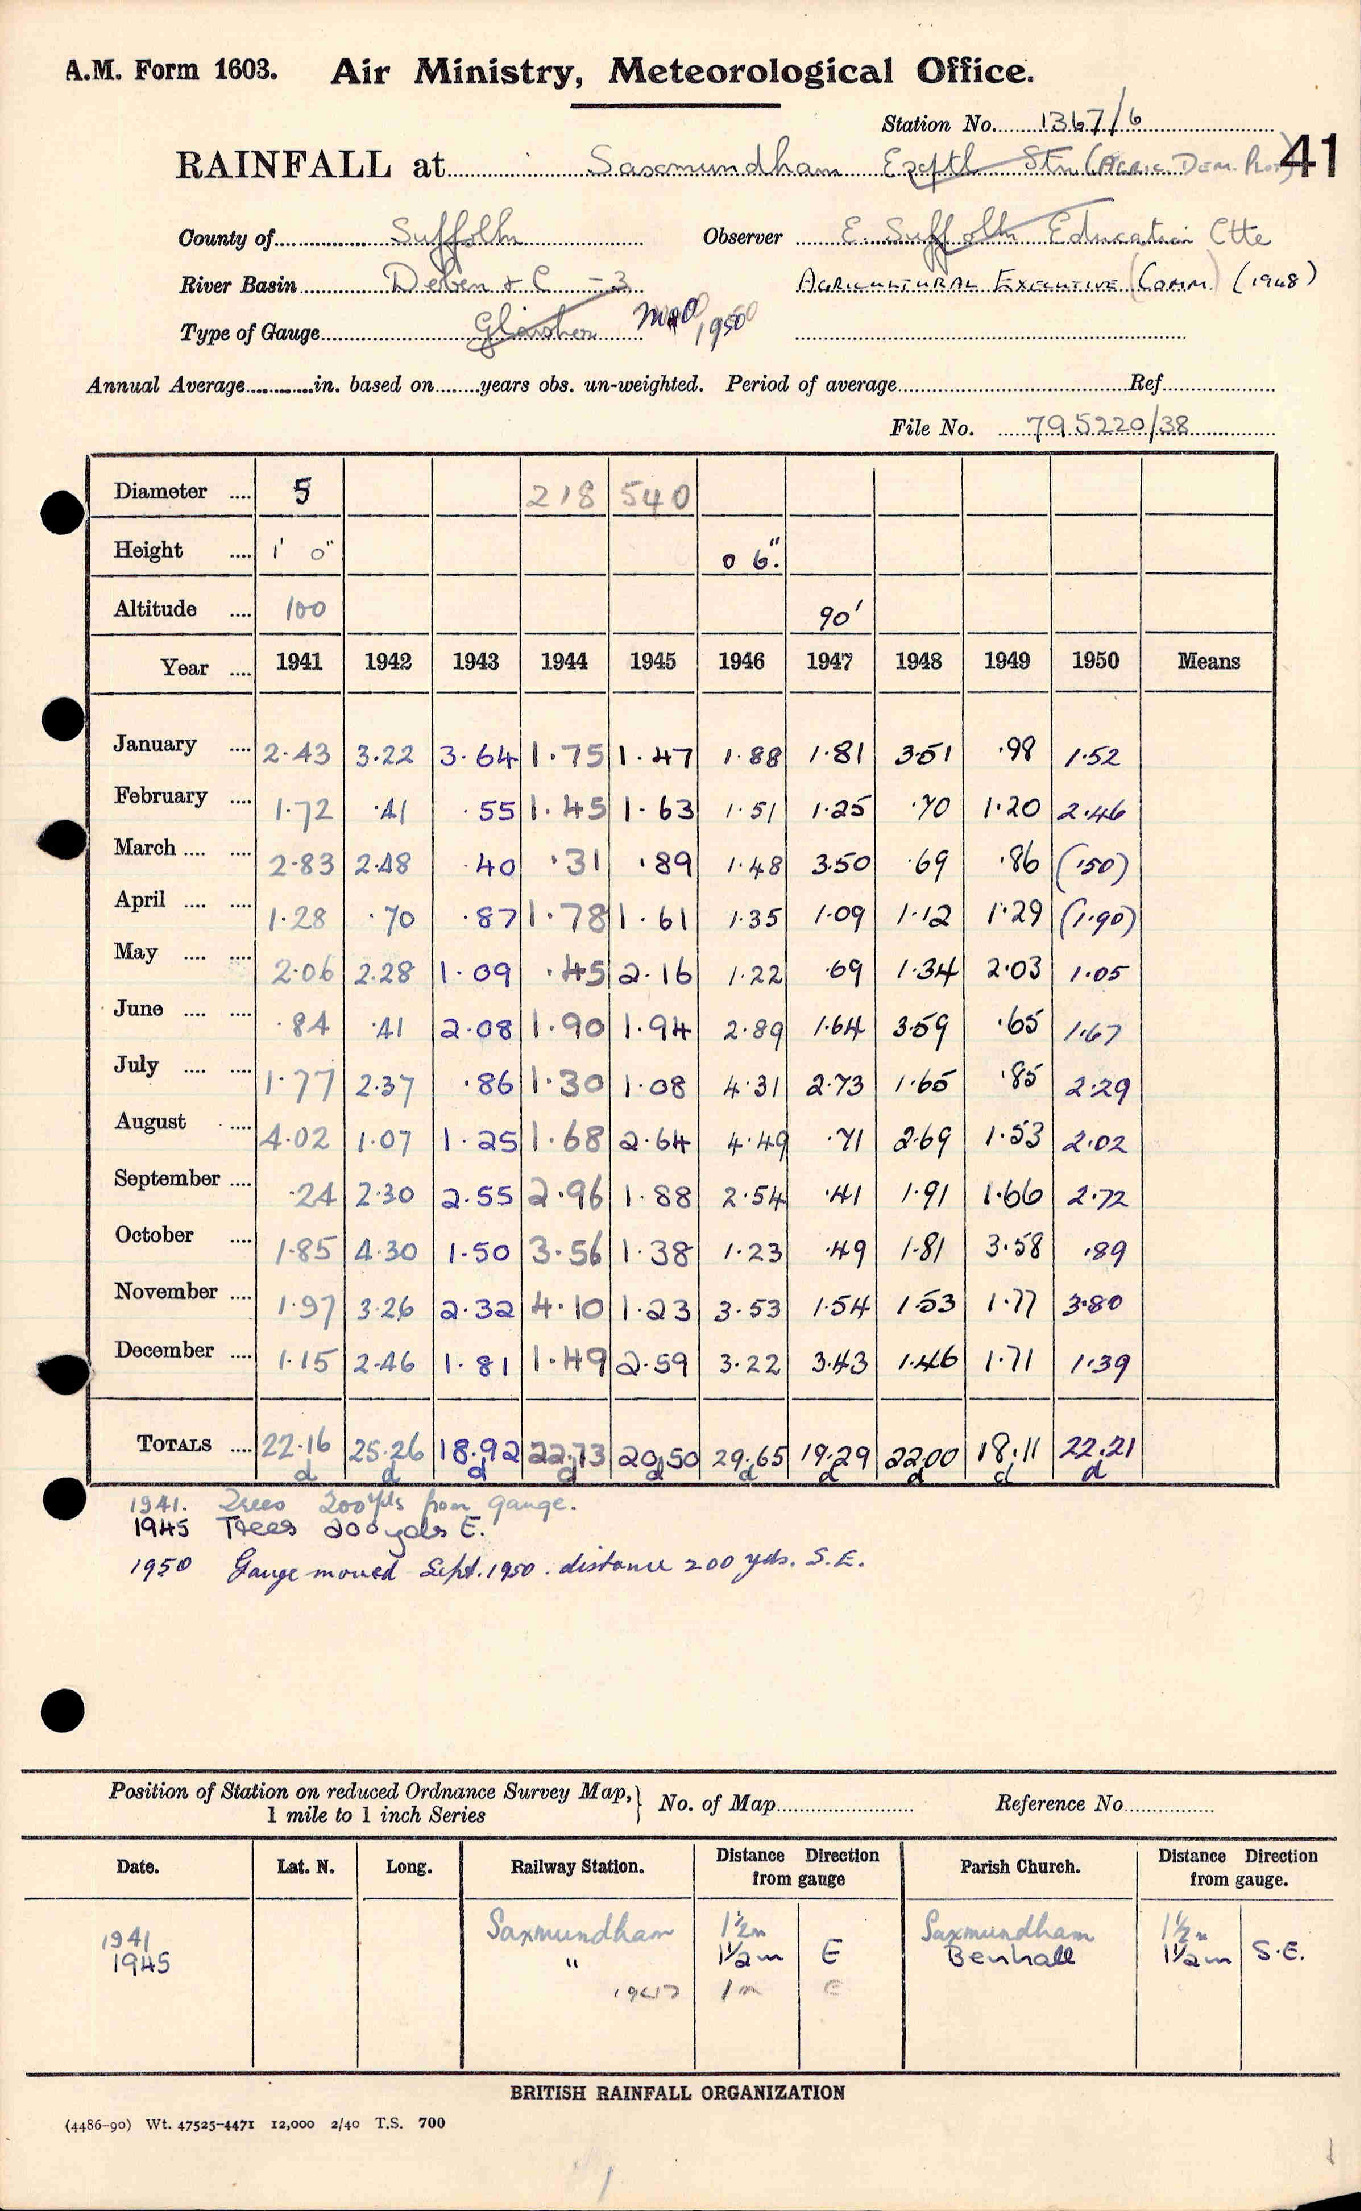 A.M. Form 1603. Air Ministry, Meteorological Office.
Station No. 1367/6
RAINFALL at Saxmundham Exptl Stn (Agric. Dem. Plot) 41
County of Suffolk Observer E. Suffolk Education Ctte
River Basin Deben & C - 3 Agricultural Executive (Comm) (1948)
Type of Gauge Glaisher MO 1950
Annual Average in. based on years obs. un-weighted. Period of average Ref
File No. 795220/38
Diameter 5 218 540
Height 1' 0" 0 6".
Altitude 100 90'
Year 1941 1942 1943 1944 1945 1946 1947 1948 1949 1950 Means
January 2.43 3.22 3.64 1.75 1.47 1.88 1.81 3.51 .98 1.52
February 1.72 .41 .55 1.45 1.63 1.51 1.25 .70 1.20 2.46
March 2.83 2.48 .40 .31 .89 1.48 3.50 .69 .86 (.50)
April 1.28 .70 .87 1.78 1.61 1.35 1.09 1.12 1.29 (1.90)
May 2.06 2.28 1.09 .45 2.16 1.22 .69 1.34 2.03 1.05
June .84 .41 2.08 1.90 1.94 2.89 1.64 3.59 .65 1.67
July 1.77 2.37 .86 1.30 1.08 4.31 2.73 1.65 .85 2.29
August 4.02 1.07 1.25 1.68 2.64 4.49 .71 2.69 1.53 2.02
September .24 2.30 2.55 2.96 1.88 2.54 .41 1.91 1.66 2.72
October 1.85 4.30 1.50 3.56 1.38 1.23 .49 1.81 3.58 .89
November 1.97 3.26 2.32 4.10 1.23 3.53 1.54 1.53 1.77 3.80
December 1.15 2.46 1.81 1.49 2.59 3.22 3.43 1.46 1.71 1.39
Totals 22.16 25.26 18.92 22.73 20.50 29.65 19.29 22.00 18.11 22.21
d d d d d d d d d d
1941. Trees 200 yds from gauge.
1945 Trees 200 yds E.
1950 Gauge moved Sept. 1950. distance 200 yds. S.E.
Position of Station on reduced Ordnance Survey Map, 1 mile to 1 inch Series } No. of Map Reference No
Date. Lat. N. Long. Railway Station. Distance Direction from gauge Parish Church. Distance Direction from gauge.
1941 Saxmundham 1½m Saxmundham 1½m
1945 " 1½m E Benhall 1½m S.E.
1947 1m E
BRITISH RAINFALL ORGANIZATION
(4486-90) Wt. 47525-4471 12,000 2/40 T.S. 700